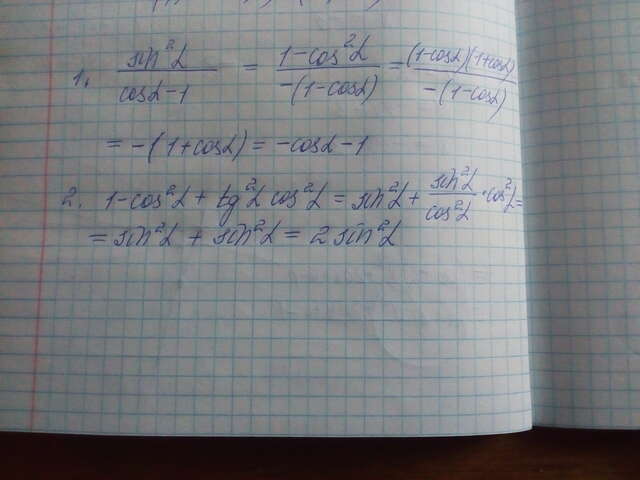 1. sin²α / cosα-1 = 1-cos²α / -(1-cosα) = (1-cosα)(1+cosα) / -(1-cosα)
= -(1+cosα) = -cosα-1
2. 1-cos²α + tg²α cos²α = sin²α + sin²α / cos²α · cos²α =
= sin²α + sin²α = 2 sin²α